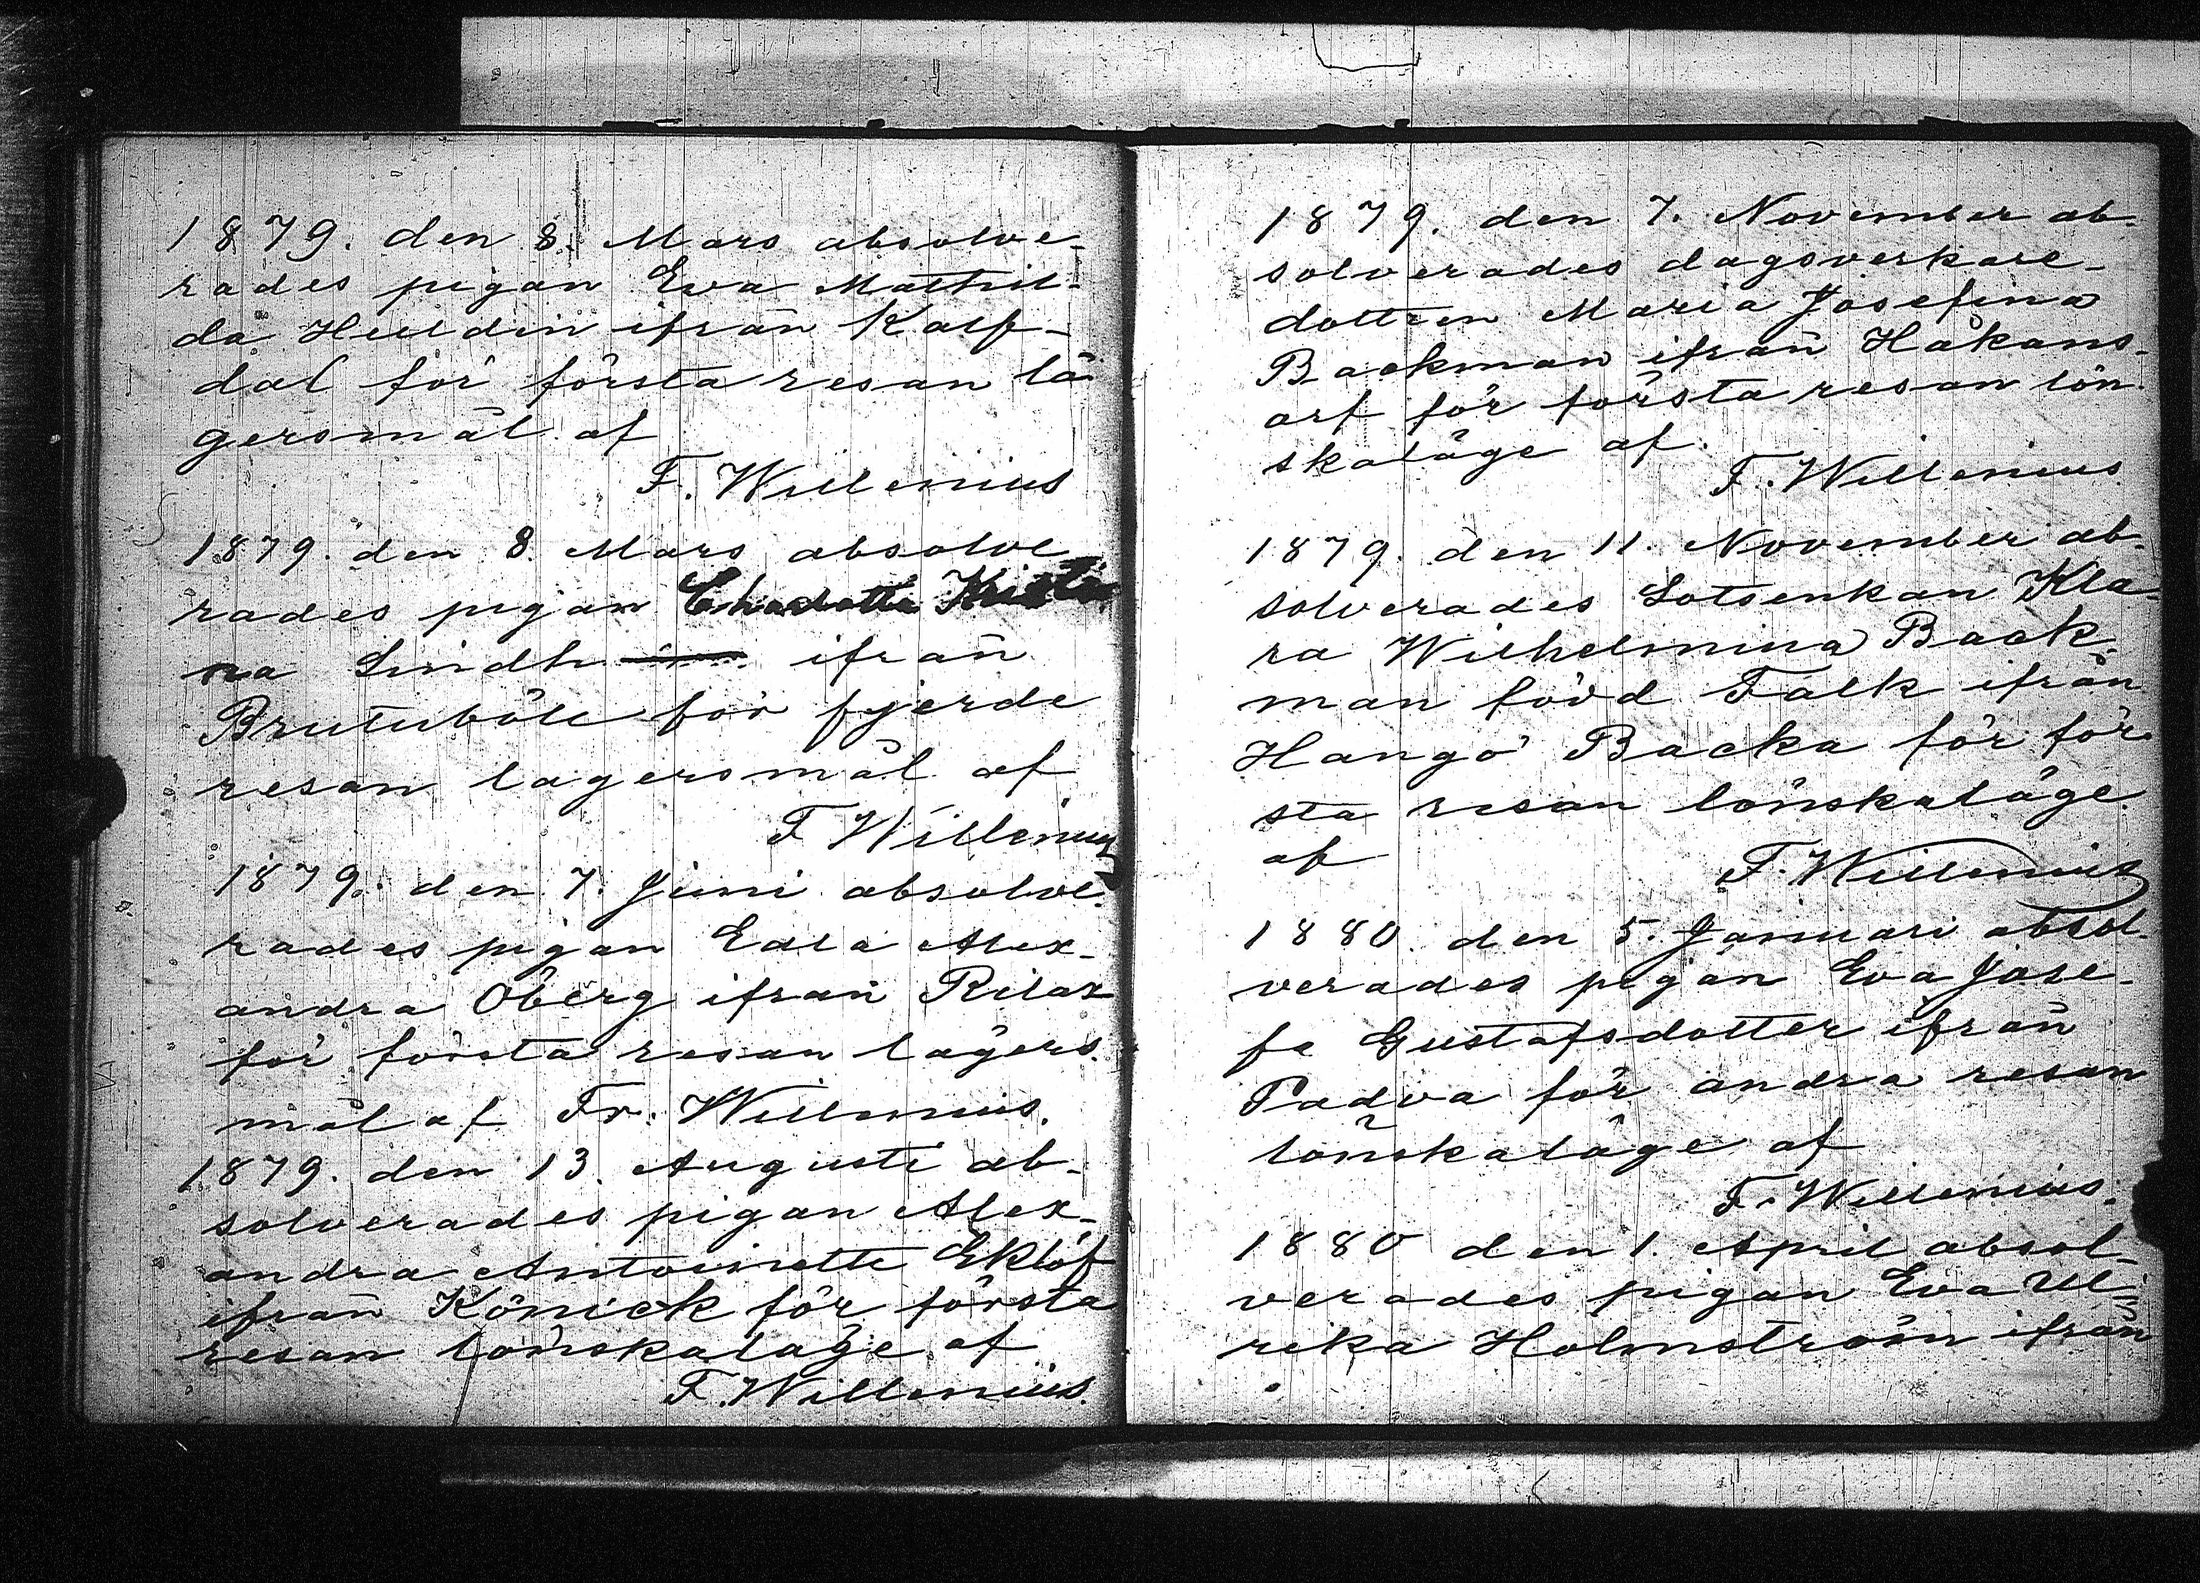 1879. den 8. Mars absolve-
rades pigan Eva Mathil-
da Helldin ifrån Kalf-
dal för första resan lä-
gersmål af
F. Willenius
1879. den 8. Mars absolve
rades pigan Charlotta Kristi
na Lindh ifrån
Brutuböle för fjerde
resan lägersmål af
F Willenius
1879. den 7. Juni absolve-
rades pigan Edla Alex-
andra Öberg ifrån Rilax
för första resan lägers-
mål af Fr. Willenius.
1879. den 13. Augusti ab-
solverades pigan Alex-
andra Antoinette Eklöf
ifrån Könick för första
resan lönskaläge af
F. Willenius.
1879. den 7. November ab-
solverades dagsverkare-
dottren Maria Josefina
Backman ifrån Håkans-
arf för första resan lön-
skaläge af.
F. Willenius.
1879. den 11. November ab-
solverades Lotsenkan Kla-
ra Wilhelmina Back-
man född Falk ifrån
Hangö Backa för för-
sta resan lönskaläge
af
F. Willenius
1880. den 5. Januari absol-
verades pigan Eva Jose-
fa Gustafsdotter ifrån
Padva för andra resan
lönskaläge af
F. Willenius.
1880 den 1. April absol-
verades pigan Eva Ul-
rika Holmström ifrån